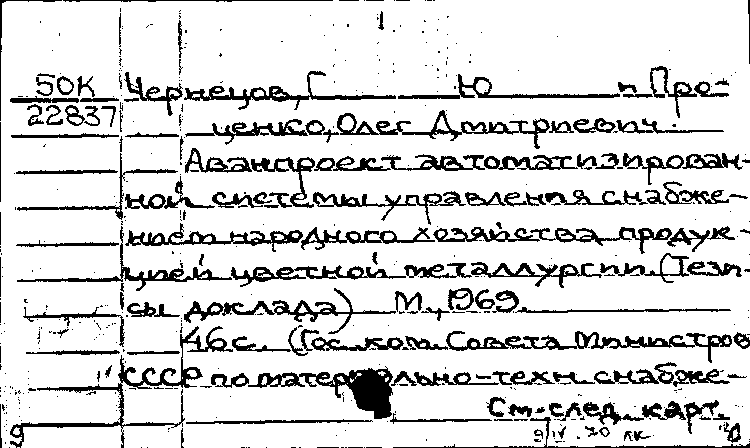 50К Чернецов, Г Ю и Про-
22837 ценко, Олег Дмитриевич.
Аванпроект автоматизирован-
ной системы управления снабже-
нием народного хозяйства продук-
цией цветной металлургии. (Тези-
сы доклада) М., 1969.
46с. (Гос. ком. Совета Министров
СССР по материально-техн. снабже-
См. след. карт.
9